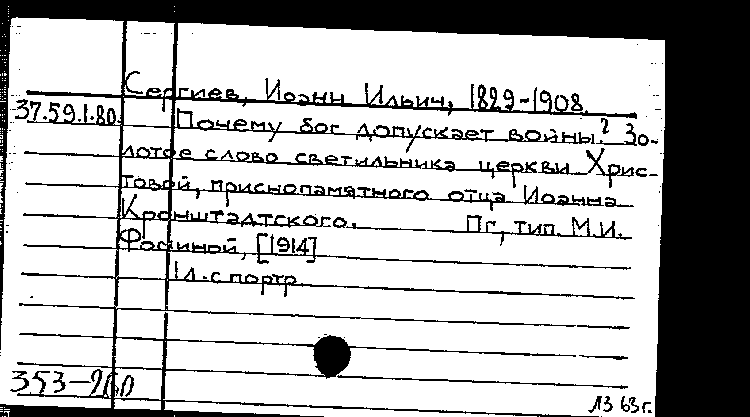 Сергиев, Иоанн Ильич, 1829-1908.
37.59.1.80. Почему бог допускает войны? Зо-
лотое слово светильника церкви Хрис-
товой, приснопамятного отца Иоанна
Кронштадтского. Пг, тип. М.И.
Фоминой, [1914]
1 л. с портр.
353-260
13 63г.